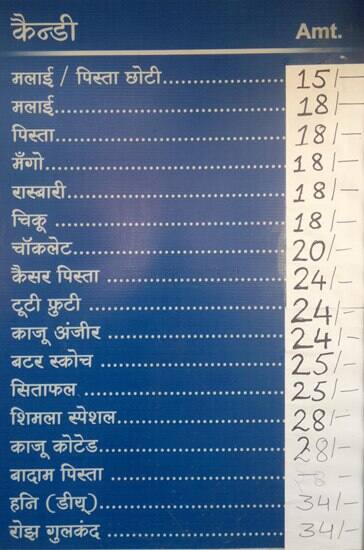 कैन्डी Amt.
मलाई / पिस्ता छोटी.................. 15/-
मलाई.................. 18/-
पिस्ता.................. 18/-
मँगो.................. 18/-
रास्बारी.................. 18/-
चिकू .................. 18/-
चॉकलेट.................. 20/-
कैसर पिस्ता .................. 24/-
टूटी फ्रुटी .................. 24/-
काजू अंजीर .................. 24/-
बटर स्कोच .................. 25/-
सिताफल.................. 25/-
शिमला स्पेशल.................. 28/-
काजू कोटेड.................. 28/-
बादाम पिस्ता ..................
हनि (डीयू).................. 34/-
रोझ गुलकंद .................. 34/-